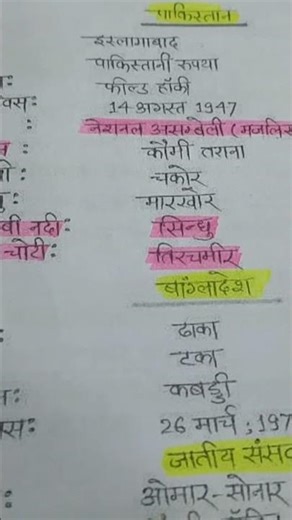 पाकिस्तान
इस्लामाबाद
पाकिस्तानी रुपया
फील्ड हॉकी
14 अगस्त 1947
नेशनल असम्बेली (मजलिस
कौमी तराना
चकोर
मारखोर
वी नदी: सिन्धु
चोटी: तिरचमीर
बांग्लादेश
ढाका
टका
कबड्डी
26 मार्च, 197
जातीय संसद
ओमार-सोनार